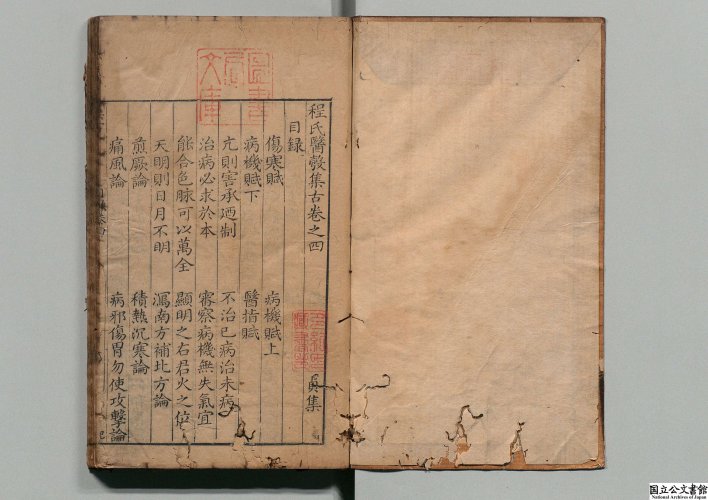 程氏醫彀集古卷之四
貞集
目錄
傷寒賦 病機賦上
病機賦下 醫指賦
亢則害承廼制 不治已病治未病
治病必求於本 審察病機無失氣宜
能合色脉可以萬全 顯明之右君火之位
天明則日月不明 瀉南方補北方論
煎厥論 積熱沉寒論
痛風論 病邪傷胃勿使攻擊論
文庫
國立公文書館
National Archives of Japan